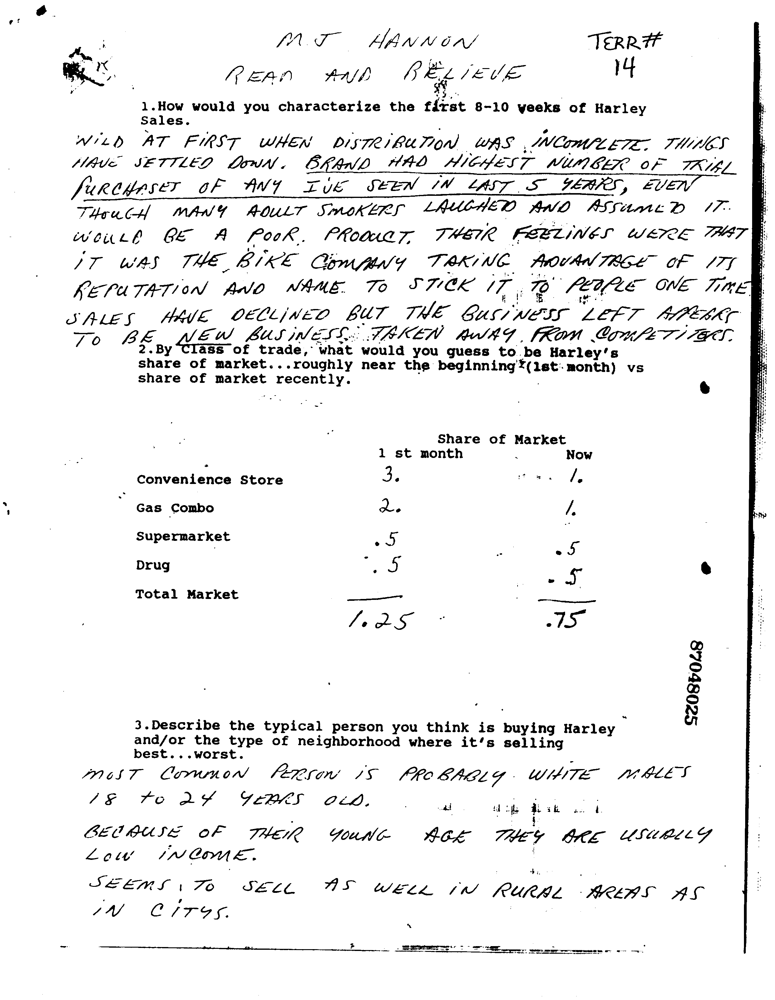 MJ HANNON TERR#
READ AND BELIEVE 14
1.How would you characterize the first 8-10 weeks of Harley
Sales.
WILD AT FIRST WHEN DISTRIBUTION WAS INCOMPLETE. THINGS
HAVE SETTLED DOWN. BRAND HAD HIGHEST NUMBER OF TRIAL
PURCHASET OF ANY IVE SEEN IN LAST 5 YEARS, EVEN
THOUGH MANY ADULT SMOKERS LAUGHED AND ASSUMED IT
WOULD BE A POOR PRODUCT. THEIR FEELINGS WERE THAT
IT WAS THE BIKE COMPANY TAKING ADVANTAGE OF ITS
REPUTATION AND NAME TO STICK IT TO PEOPLE ONE TIME
SALES HAVE DECLINED BUT THE BUSINESS LEFT APPEARS
TO BE NEW BUSINESS TAKEN AWAY FROM COMPETITERS.
2.By Class of trade, what would you guess to be Harley's
share of market...roughly near the beginning (1st month) vs
share of market recently.
Share of Market
1 st month Now
Convenience Store 3. 1.
Gas Combo 2. 1.
Supermarket .5 .5
Drug .5 .5
Total Market
1.25 .75
87048025
3.Describe the typical person you think is buying Harley
and/or the type of neighborhood where it's selling
best...worst.
MOST COMMON PERSON IS PROBABLY WHITE MALES
18 to 24 YEARS OLD.
BECAUSE OF THEIR YOUNG AGE THEY ARE USUALLY
LOW INCOME.
SEEMS TO SELL AS WELL IN RURAL AREAS AS
IN CITYS.